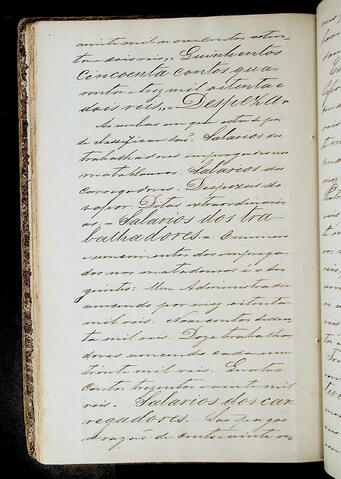 vinte mil nove centos oitenta
e dois reis, Quinhentos
cincoenta contos qua
renta e tres mil oitenta e
dois reis, - Despeza -
As verbas em que esta despe
za classificar são: Salarios dos
trabalhadores empregados nos
matadouros. Salarios dos
carregadores. Despezas do
vapor. Ditas extraordinari
as. - Salarios dos tra
balhadores - O numero
e vencimentos dos emprega
dos nos matadouros é o se
guinte: Um Administrador
vencendo por mez oitenta
mil reis. Nove centos sessen
ta mil reis. Doze trabalha
dores vencendo cada um
trinta mil reis. Quatro
contos trezentos e vinte mil
reis. Salarios dos car
regadores. São pagos
a razão de cento e vinte re